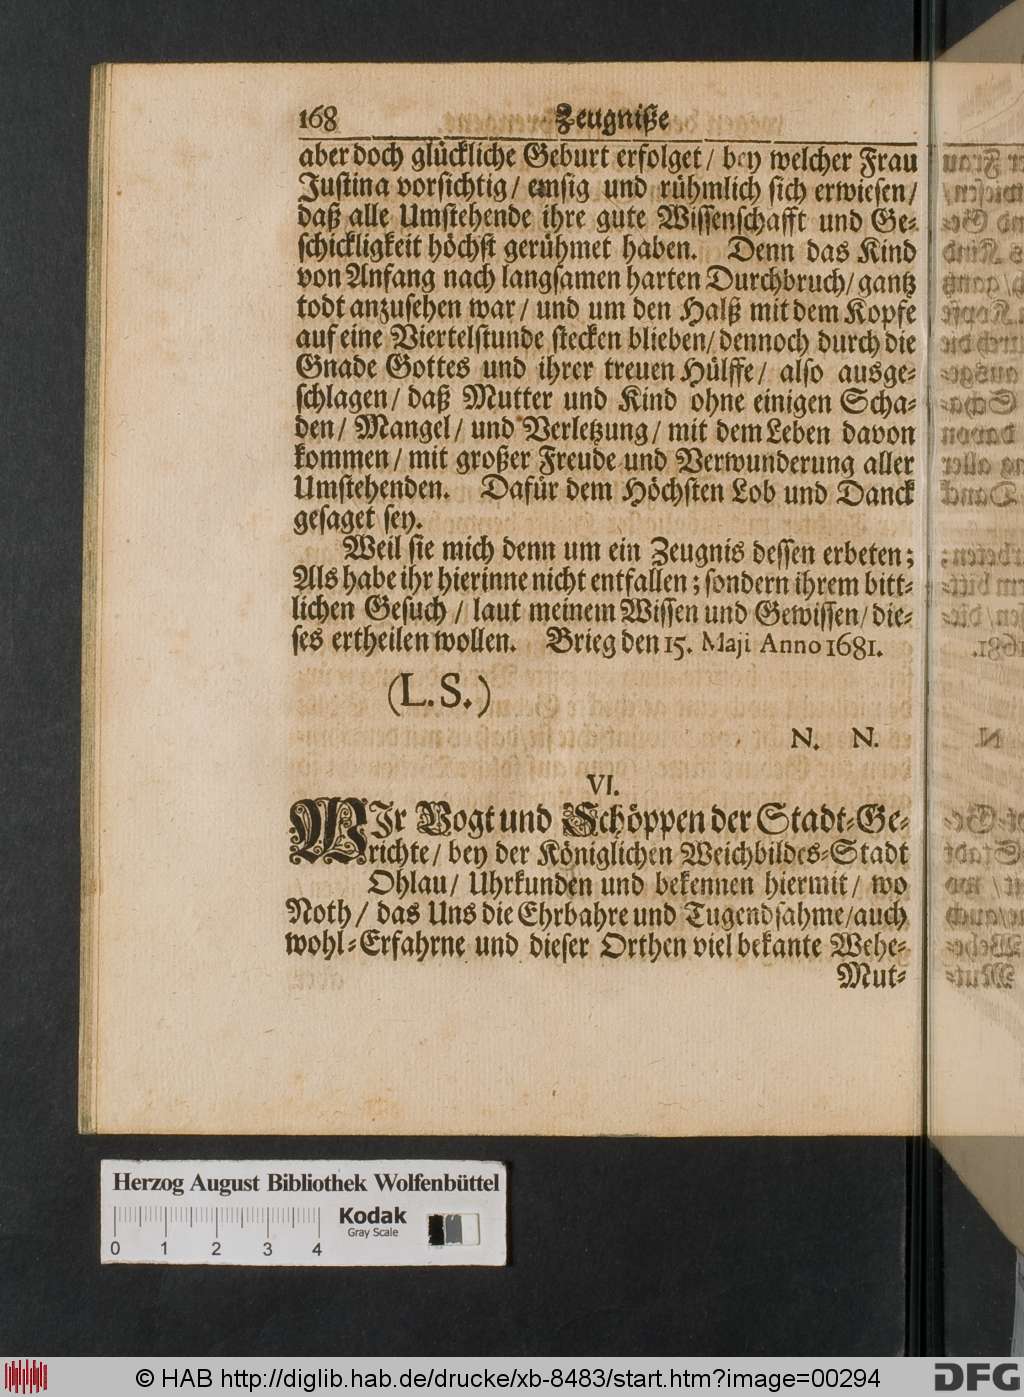 168 Zeugniße
aber doch glückliche Geburt erfolget / bey welcher Frau
Justina vorsichtig / emsig und rühmlich sich erwiesen /
daß alle Umstehende ihre gute Wissenschafft und Ge-
schickligkeit höchst gerühmet haben. Denn das Kind
von Anfang nach langsamen harten Durchbruch / gantz
todt anzusehen war / und um den Halß mit dem Kopfe
auf eine Viertelstunde stecken blieben / dennoch durch die
Gnade Gottes und ihrer treuen Hülffe / also ausge-
schlagen / daß Mutter und Kind ohne einigen Scha-
den / Mangel / und Verletzung / mit dem Leben davon
kommen / mit großer Freude und Verwunderung aller
Umstehenden. Dafür dem Höchsten Lob und Danck
gesaget sey.
Weil sie mich denn um ein Zeugnis dessen erbeten;
Als habe ihr hierinne nicht entfallen; sondern ihrem bitt-
lichen Gesuch / laut meinem Wissen und Gewissen / die-
ses ertheilen wollen. Brieg den 15. Maji Anno 1681.
(L.S.)
N. N.
VI.
WIr Vogt und Schöppen der Stadt-Ge-
richte / bey der Königlichen Weichbildes-Stadt
Ohlau / Uhrkunden und bekennen hiermit / wo
Noth / das Uns die Ehrbahre und Tugendsahme / auch
wohl-Erfahrne und dieser Orthen viel bekante Wehe-
Mut-
Herzog August Bibliothek Wolfenbüttel
Kodak
Gray Scale
0 1 2 3 4
© HAB http://diglib.hab.de/drucke/xb-8483/start.htm?image=00294
DFG